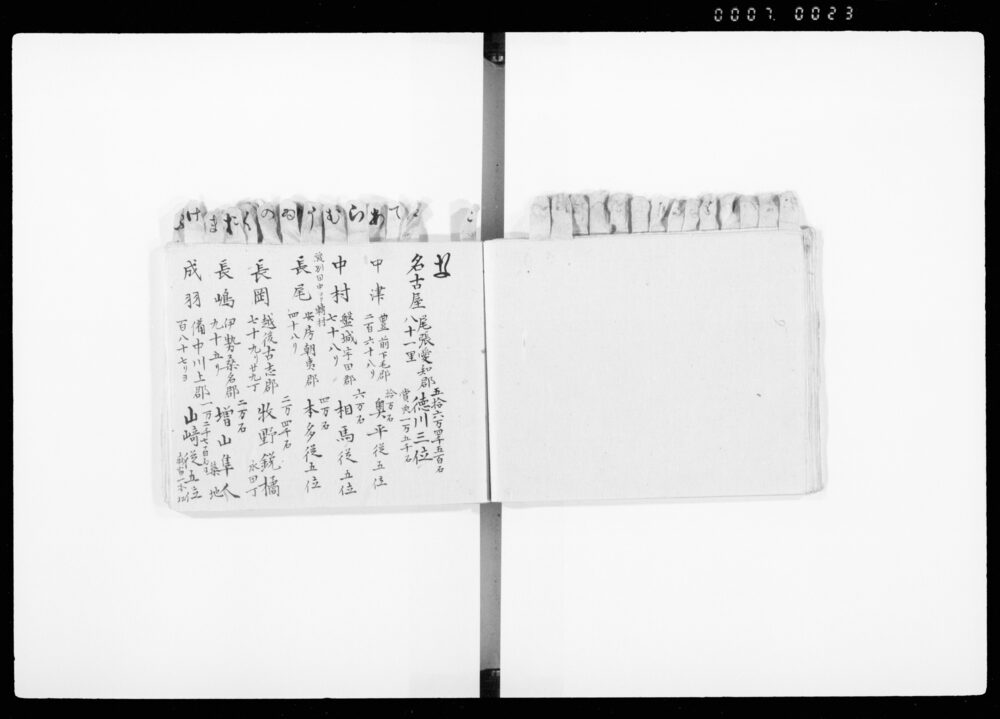 0007 0023
な
名古屋 尾張愛知郡 五拾六万四千五百石
八十一里 徳川三位
賞典一万五千石
中津 豊前下毛郡 拾万石
二百六十八り 奥平従五位
中村 盤城宇田郡 六万石
七十八り 相馬従五位
長尾 安房朝夷郡 四万石
四十八り 本多従五位
長岡 越後古志郡 二万四千石
七十九り廿九丁 牧野鋭橘
永田丁
長嶋 伊勢桑名郡 二万石
九十五り 増山隼人
築地
成羽 備中川上郡
百八十七りヨ 山崎従五位